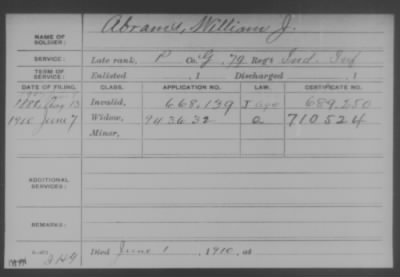 Abrams, William J.
NAME OF SOLDIER:
SERVICE: Late rank, P Co. G, 79 Reg't Ind. Inf
TERM OF SERVICE: Enlisted , 1 Discharged , 1
DATE OF FILING. CLASS. APPLICATION NO. LAW. CERTIFICATE NO.
1888, Aug 13 Invalid, 668,139 689,250
1910 June 7 Widow, 943632 a 710524
Minor,
ADDITIONAL SERVICES:
REMARKS:
Died June 1, 1910, at